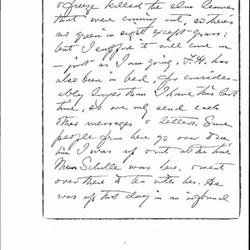 a freeze killed the elm leaves
that were coming out, so there's
no green in sight except grass;
but I suppose it will come in
– just as I am going. F.H. has
also been in bed, for consider-
ably longer than I have this last
time, so we only send each
other messages & letters. Some
people from here go over to see
him & I was up out at the time
Miss Scholle was here, & went
over there to tea with her. He
was up that day in an informal